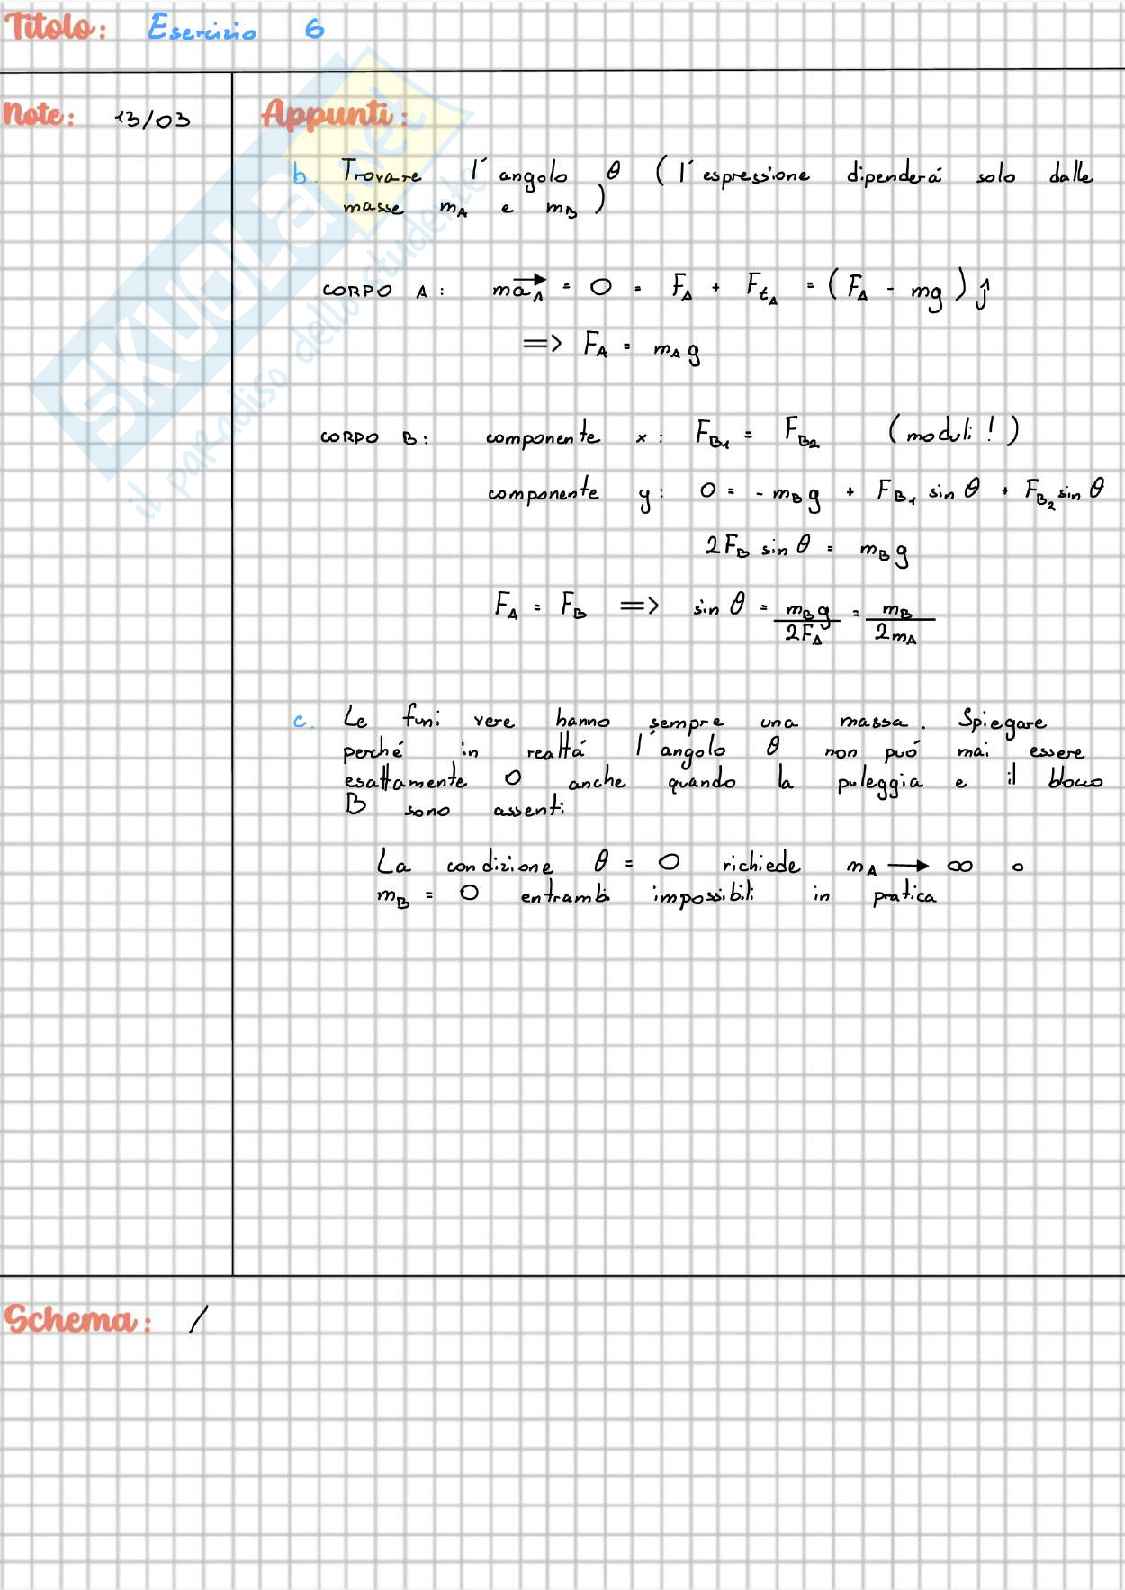 Titolo: Esercizio 6
Note: 13/03
Appunti:
b. Trovare l'angolo θ (l'espressione dipenderá solo dalle
masse m_A e m_B)
CORPO A: m\vec{a_A} = 0 = F_A + F_{t_A} = (F_A - mg) ĵ
=> F_A = m_A g
CORPO B: componente x: F_{B1} = F_{B2} (moduli!)
componente y: 0 = - m_B g + F_{B1} sin θ + F_{B2} sin θ
2F_B sin θ = m_B g
F_A = F_B => sin θ = \frac{m_B g}{2F_A} = \frac{m_B}{2m_A}
c. Le funi vere hanno sempre una massa. Spiegare
perché in realtá l'angolo θ non puó mai essere
esattamente 0 anche quando la puleggia e il blocco
B sono assenti
La condizione θ = 0 richiede m_A → ∞ o
m_B = 0 entrambi impossibili in pratica
Schema: /
SKUOLA.net
il paradiso dello studente